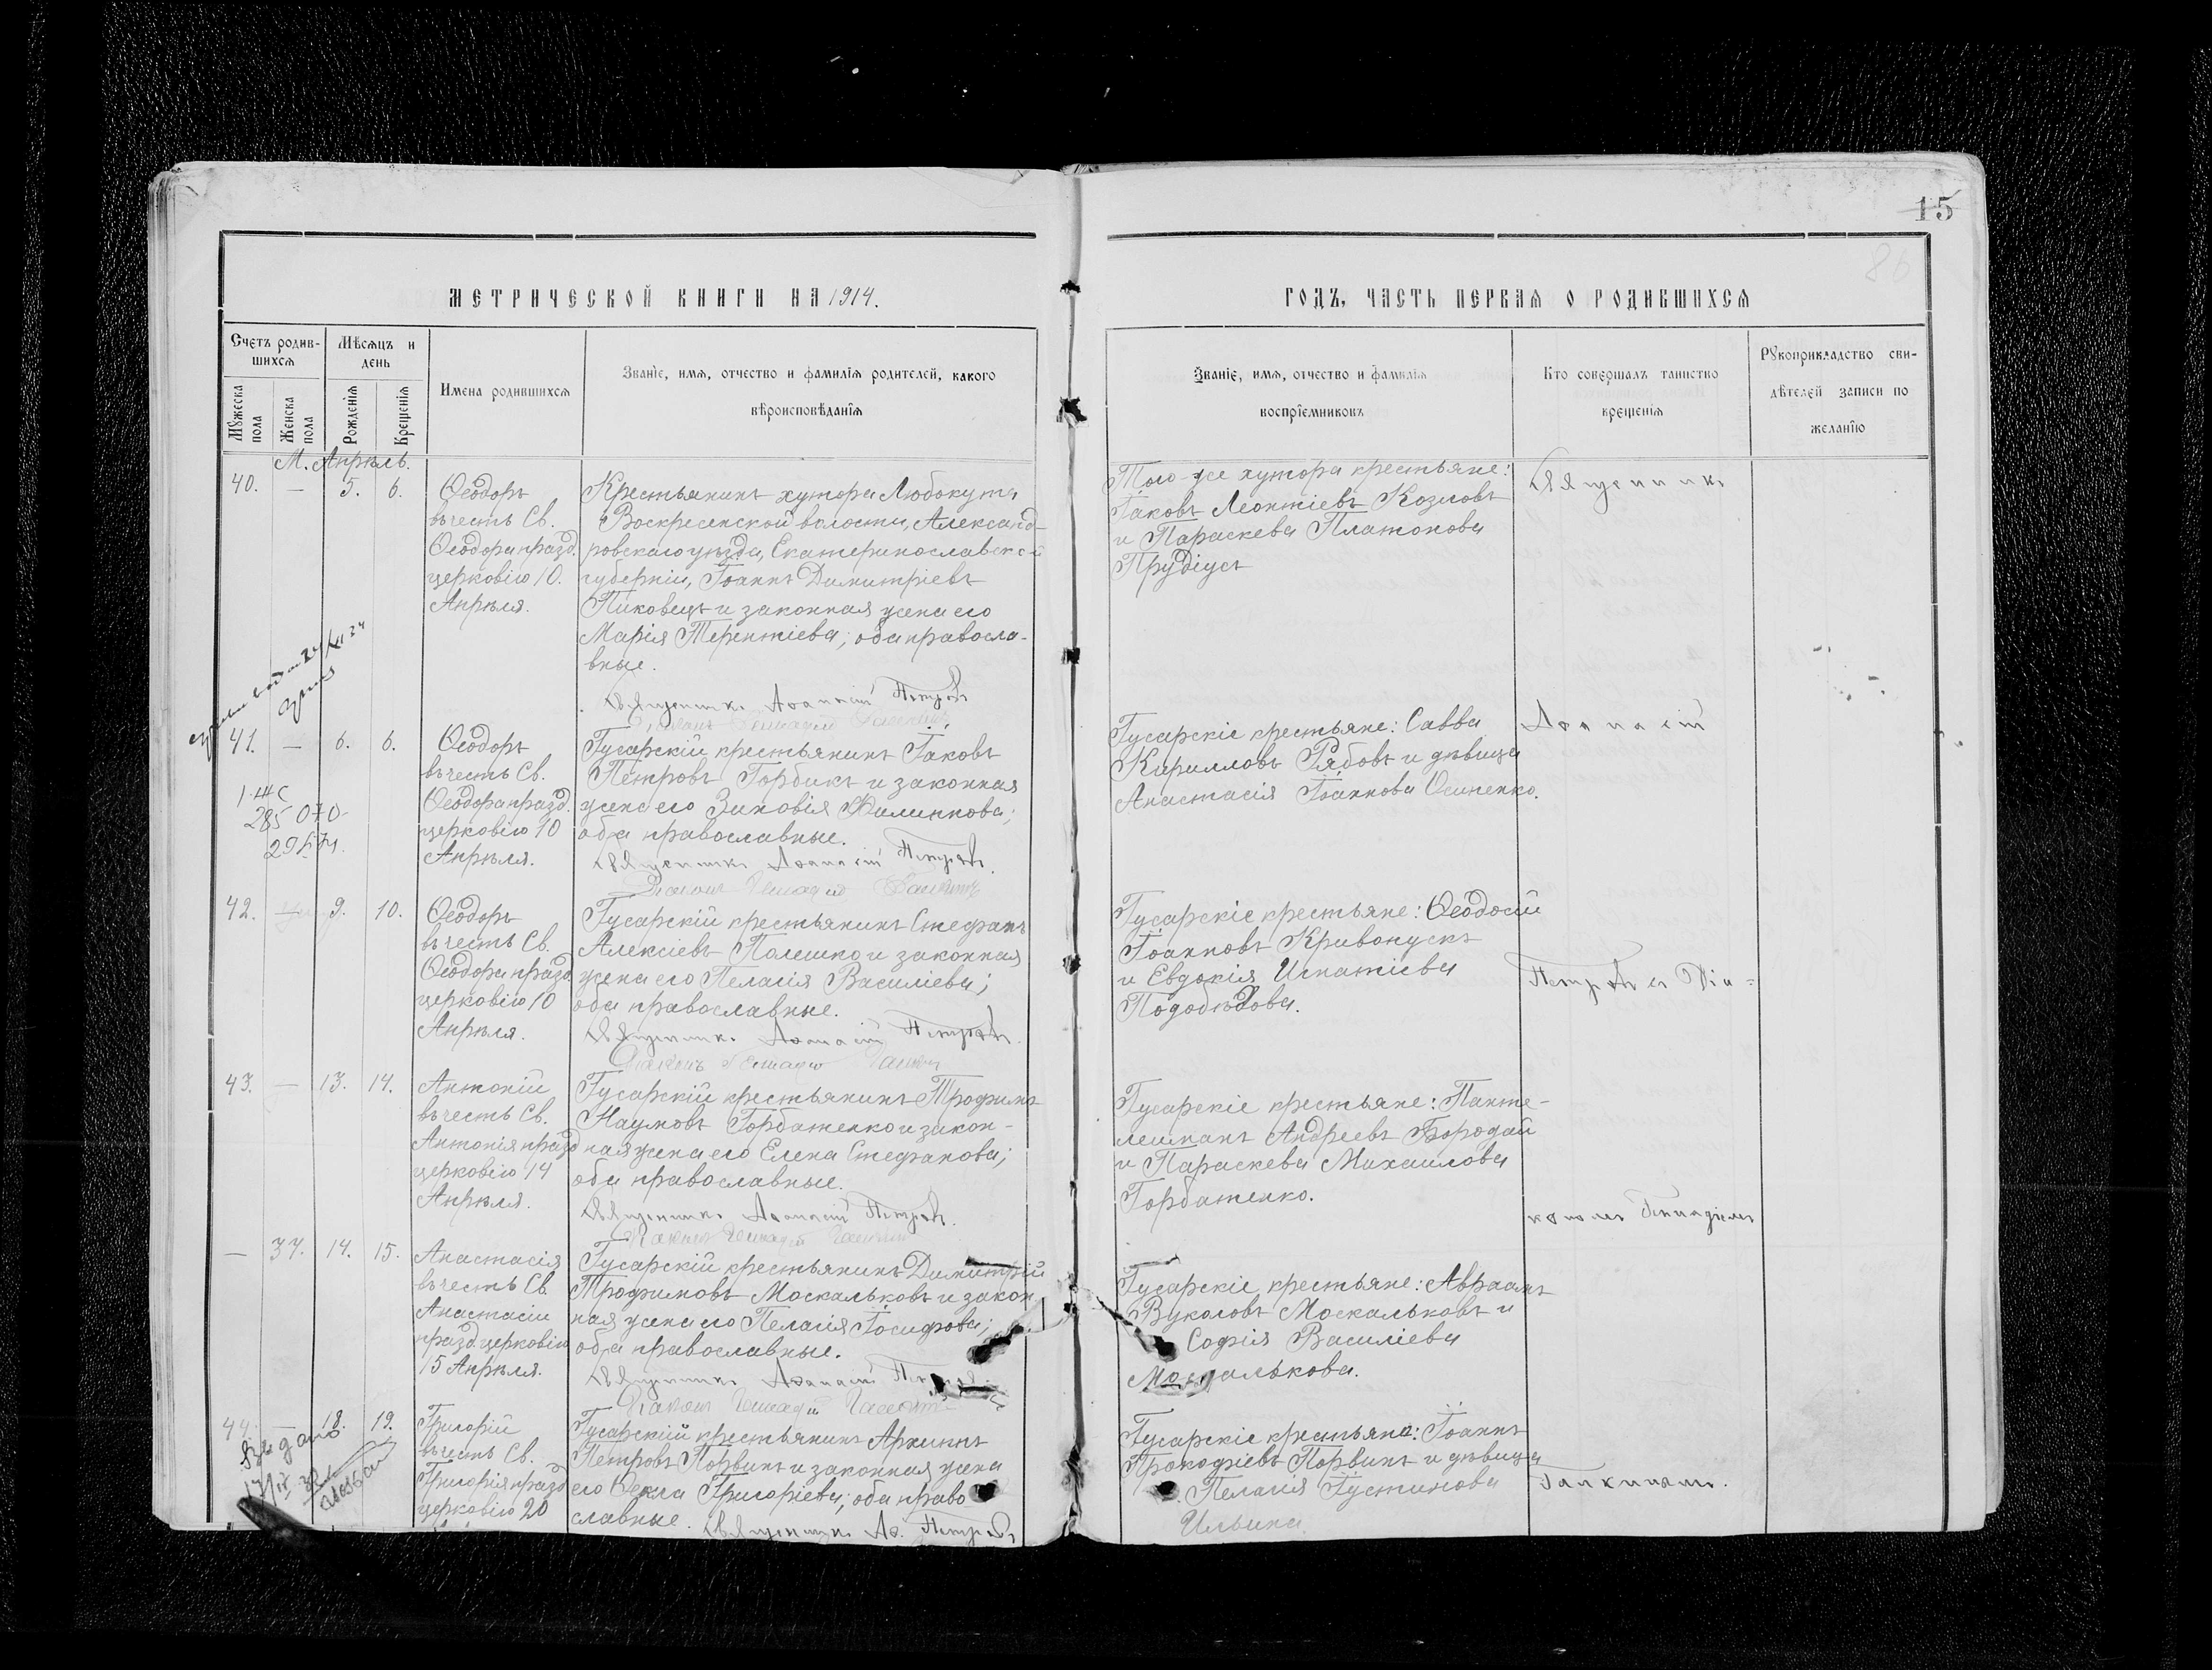 15
86
МЕТРИЧЕСКОЙ КНИГИ НА 1914.
ГОДЪ, ЧАСТЬ ПЕРВАЯ О РОДИВШИХСЯ
Счетъ родившихся
Мужеска пола
Женска пола
Мѣсяцъ и день
Рожденія
Крещенія
Имена родившихся
Званіе, имя, отчество и фамилія родителей, какого
вѣроисповѣданія
Званіе, имя, отчество и фамилія
воспріемниковъ
Кто совершалъ таинство
крещенія
Рукоприкладство сви-
дѣтелей записи по
желанію
М. Апрѣль.
40. — 5. 6.
Ѳеодоръ
въ честь Св.
Ѳеодора празд.
церковію 10.
Апрѣля.
Крестьянинъ хутора Любокута
Воскресенской волости, Александ-
ровскаго уѣзда, Екатеринославской
губерніи, Іоаннъ Димитріевъ
Пиковецъ и законная жена его
Марія Терентіева; оба правосла-
вные.
Священникъ Аѳанасій Петровъ
Того-же хутора крестьяне:
Іаковъ Леонтіевъ Козловъ
и Параскева Платонова
Прудіусъ
Священникъ
41. — 6. 6.
285 070
Ѳеодоръ
въ честь Св.
Ѳеодора празд.
церковію 10
Апрѣля.
Гусарскій крестьянинъ Іаковъ
Петровъ Горбикъ и законная
жена его Зиновія Филиппова;
оба православные.
Священникъ Аѳанасій Петровъ.
Діаконъ Геннадій Галкинъ
Гусарскіе крестьяне: Савва
Кирилловъ Рябовъ и дѣвица
Анастасія Іоаннова Осипенко.
Аѳанасій
42. — 9. 10.
Ѳеодоръ
въ честь Св.
Ѳеодора празд.
церковію 10
Апрѣля.
Гусарскій крестьянинъ Стефанъ
Алексіевъ Полешко и законная
жена его Пелагія Василіева;
оба православные.
Священникъ Аѳанасій Петровъ.
Діаконъ Геннадій Галкинъ
Гусарскіе крестьяне: Ѳеодосій
Іоанновъ Кривопускъ
и Евдокія Игнатіева
Подобѣдова.
Петровъ съ Діа=
43. — 13. 14.
Антоній
въ честь Св.
Антонія празд
церковію 14
Апрѣля.
Гусарскій крестьянинъ Трофимъ
Наумовъ Горбатенко и закон-
ная жена его Елена Стефанова;
оба православные.
Священникъ Аѳанасій Петровъ.
Діаконъ Геннадій Галкинъ
Гусарскіе крестьяне: Панте-
леимонъ Андреевъ Бородай
и Параскева Михаилова
Горбатенко.
кономъ Геннадіемъ
— 37. 14. 15.
Анастасія
въ честь Св.
Анастасіи
празд. церковію
15 Апрѣля.
Гусарскій крестьянинъ Димитрій
Трофимовъ Москальковъ и закон
ная жена его Пелагія Іосифова;
оба православные.
Священникъ Аѳанасій Петровъ
Діаконъ Геннадій Галкинъ
Гусарскіе крестьяне: Авраамъ
Вуколовъ Москальковъ и
Софія Василіева
Москалькова.
44. — 18. 19.
Выдано
Григорій
въ честь Св.
Григорія празд
церковію 20
Гусарскій крестьянинъ Архиппъ
Петровъ Порвинъ и законная жена
его Ѳекла Григоріева; оба право
славные. Священникъ Аѳ. Петровъ
Гусарскіе крестьяне: Іоаннъ
Прокофіевъ Порвинъ и дѣвица
Пелагія Іустинова
Ильина
Галкинымъ.